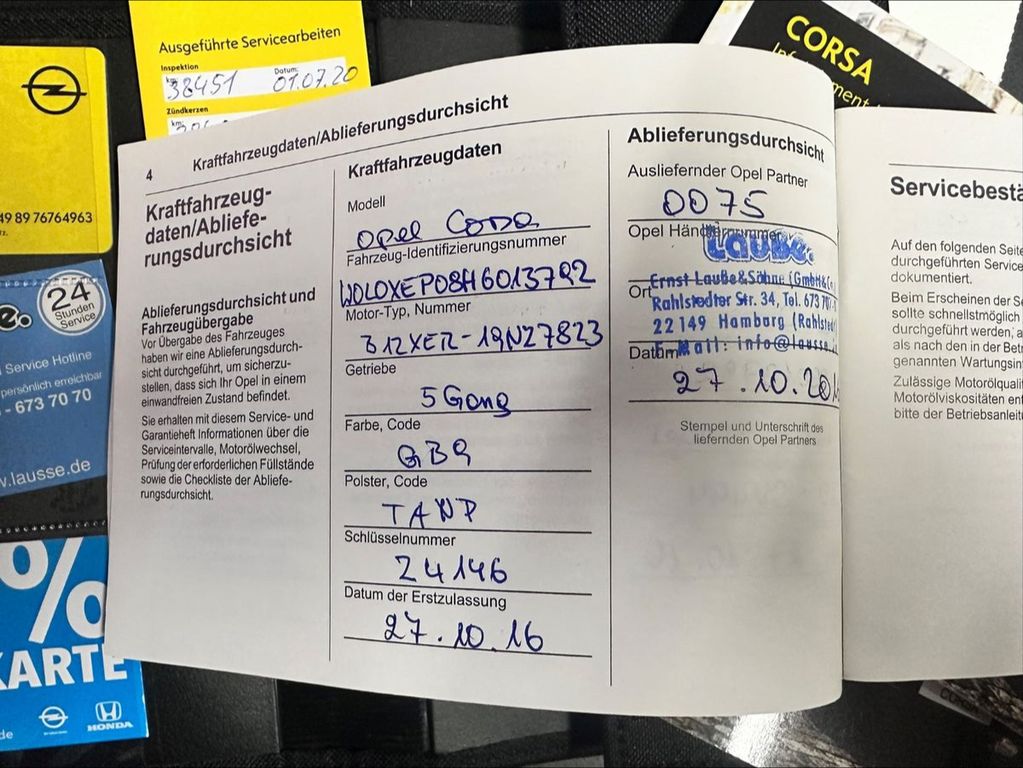 Ausgeführte Servicearbeiten
Inspektion
km: 38451 Datum: 01.07.20
Zündkerzen
km:
CORSA
49 89 76764963
24
Stunden
Service
e.
Service Hotline
persönlich erreichbar
- 673 70 70
w.lausse.de
%
KARTE
HONDA
de
4 Kraftfahrzeugdaten/Ablieferungsdurchsicht
Kraftfahrzeug-
daten/Abliefe-
rungsdurchsicht
Ablieferungsdurchsicht und
Fahrzeugübergabe
Vor Übergabe des Fahrzeuges
haben wir eine Ablieferungsdurch-
sicht durchgeführt, um sicherzu-
stellen, dass sich Ihr Opel in einem
einwandfreien Zustand befindet.
Sie erhalten mit diesem Service- und
Garantieheft Informationen über die
Serviceintervalle, Motorölwechsel,
Prüfung der erforderlichen Füllstände
sowie die Checkliste der Abliefe-
rungsdurchsicht.
Kraftfahrzeugdaten
Modell
Opel Corsa
Fahrzeug-Identifizierungsnummer
W0L0XEP08H6013792
Motor-Typ, Nummer
B12XER-19N27823
Getriebe
5 Gang
Farbe, Code
GB9
Polster, Code
TAWP
Schlüsselnummer
Z4146
Datum der Erstzulassung
27.10.16
Ablieferungsdurchsicht
Ausliefernder Opel Partner
0075
Opel Händlernummer
Lauße.
Ernst Lauße&Söhne (GmbH&Co
Ort
Rahlstedter Str. 34, Tel. 673 70
22149 Hamburg (Rahlstedt
Datum
E-Mail: info@lausse
27.10.201
Stempel und Unterschrift des
liefernden Opel Partners
Servicebestä
Auf den folgenden Seite
durchgeführten Service
dokumentiert.
Beim Erscheinen der Se
sollte schnellstmöglich
durchgeführt werden, a
als nach den in der Betr
genannten Wartungsin
Zulässige Motorölqualit
Motorölviskositäten ent
bitte der Betriebsanleitu